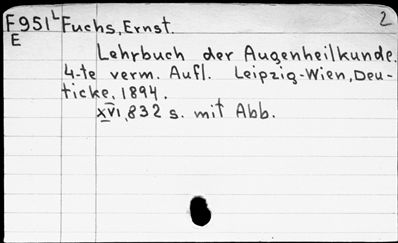 F951L Fuchs, Ernst. 2
E
Lehrbuch der Augenheilkunde.
4-te verm. Aufl. Leipzig-Wien, Deu-
ticke, 1894.
XVI, 832 s. mit Abb.